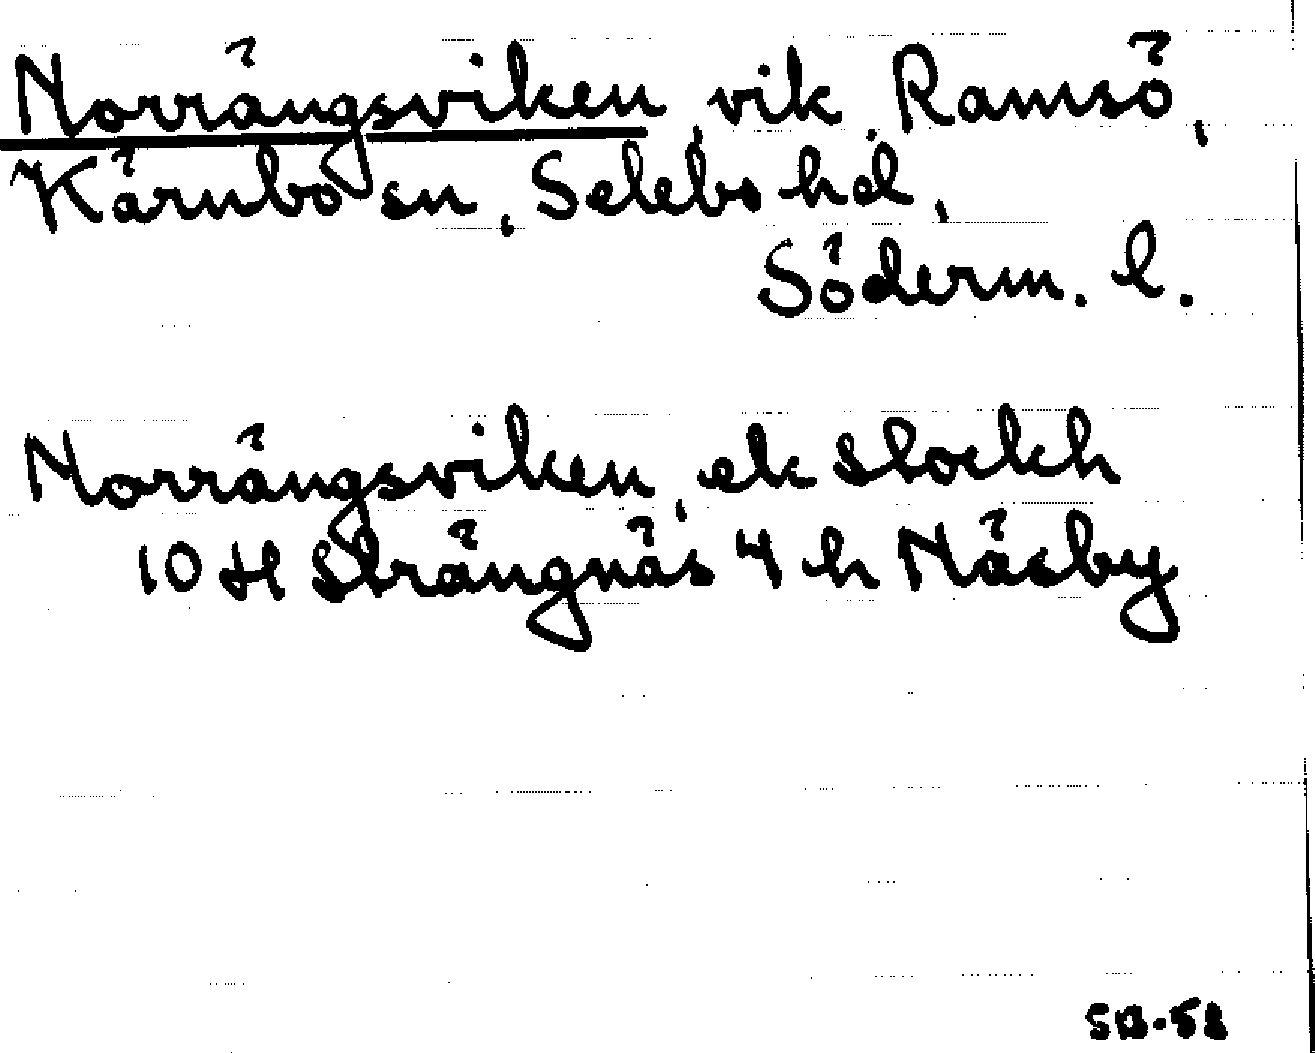 Norrängsviken, vik, Ramsö,
Kärnbo sn, Selebo hd,
Söderm. l.
Norrängsviken, ek Stockh
10 H Strängnäs 4 h Näsby